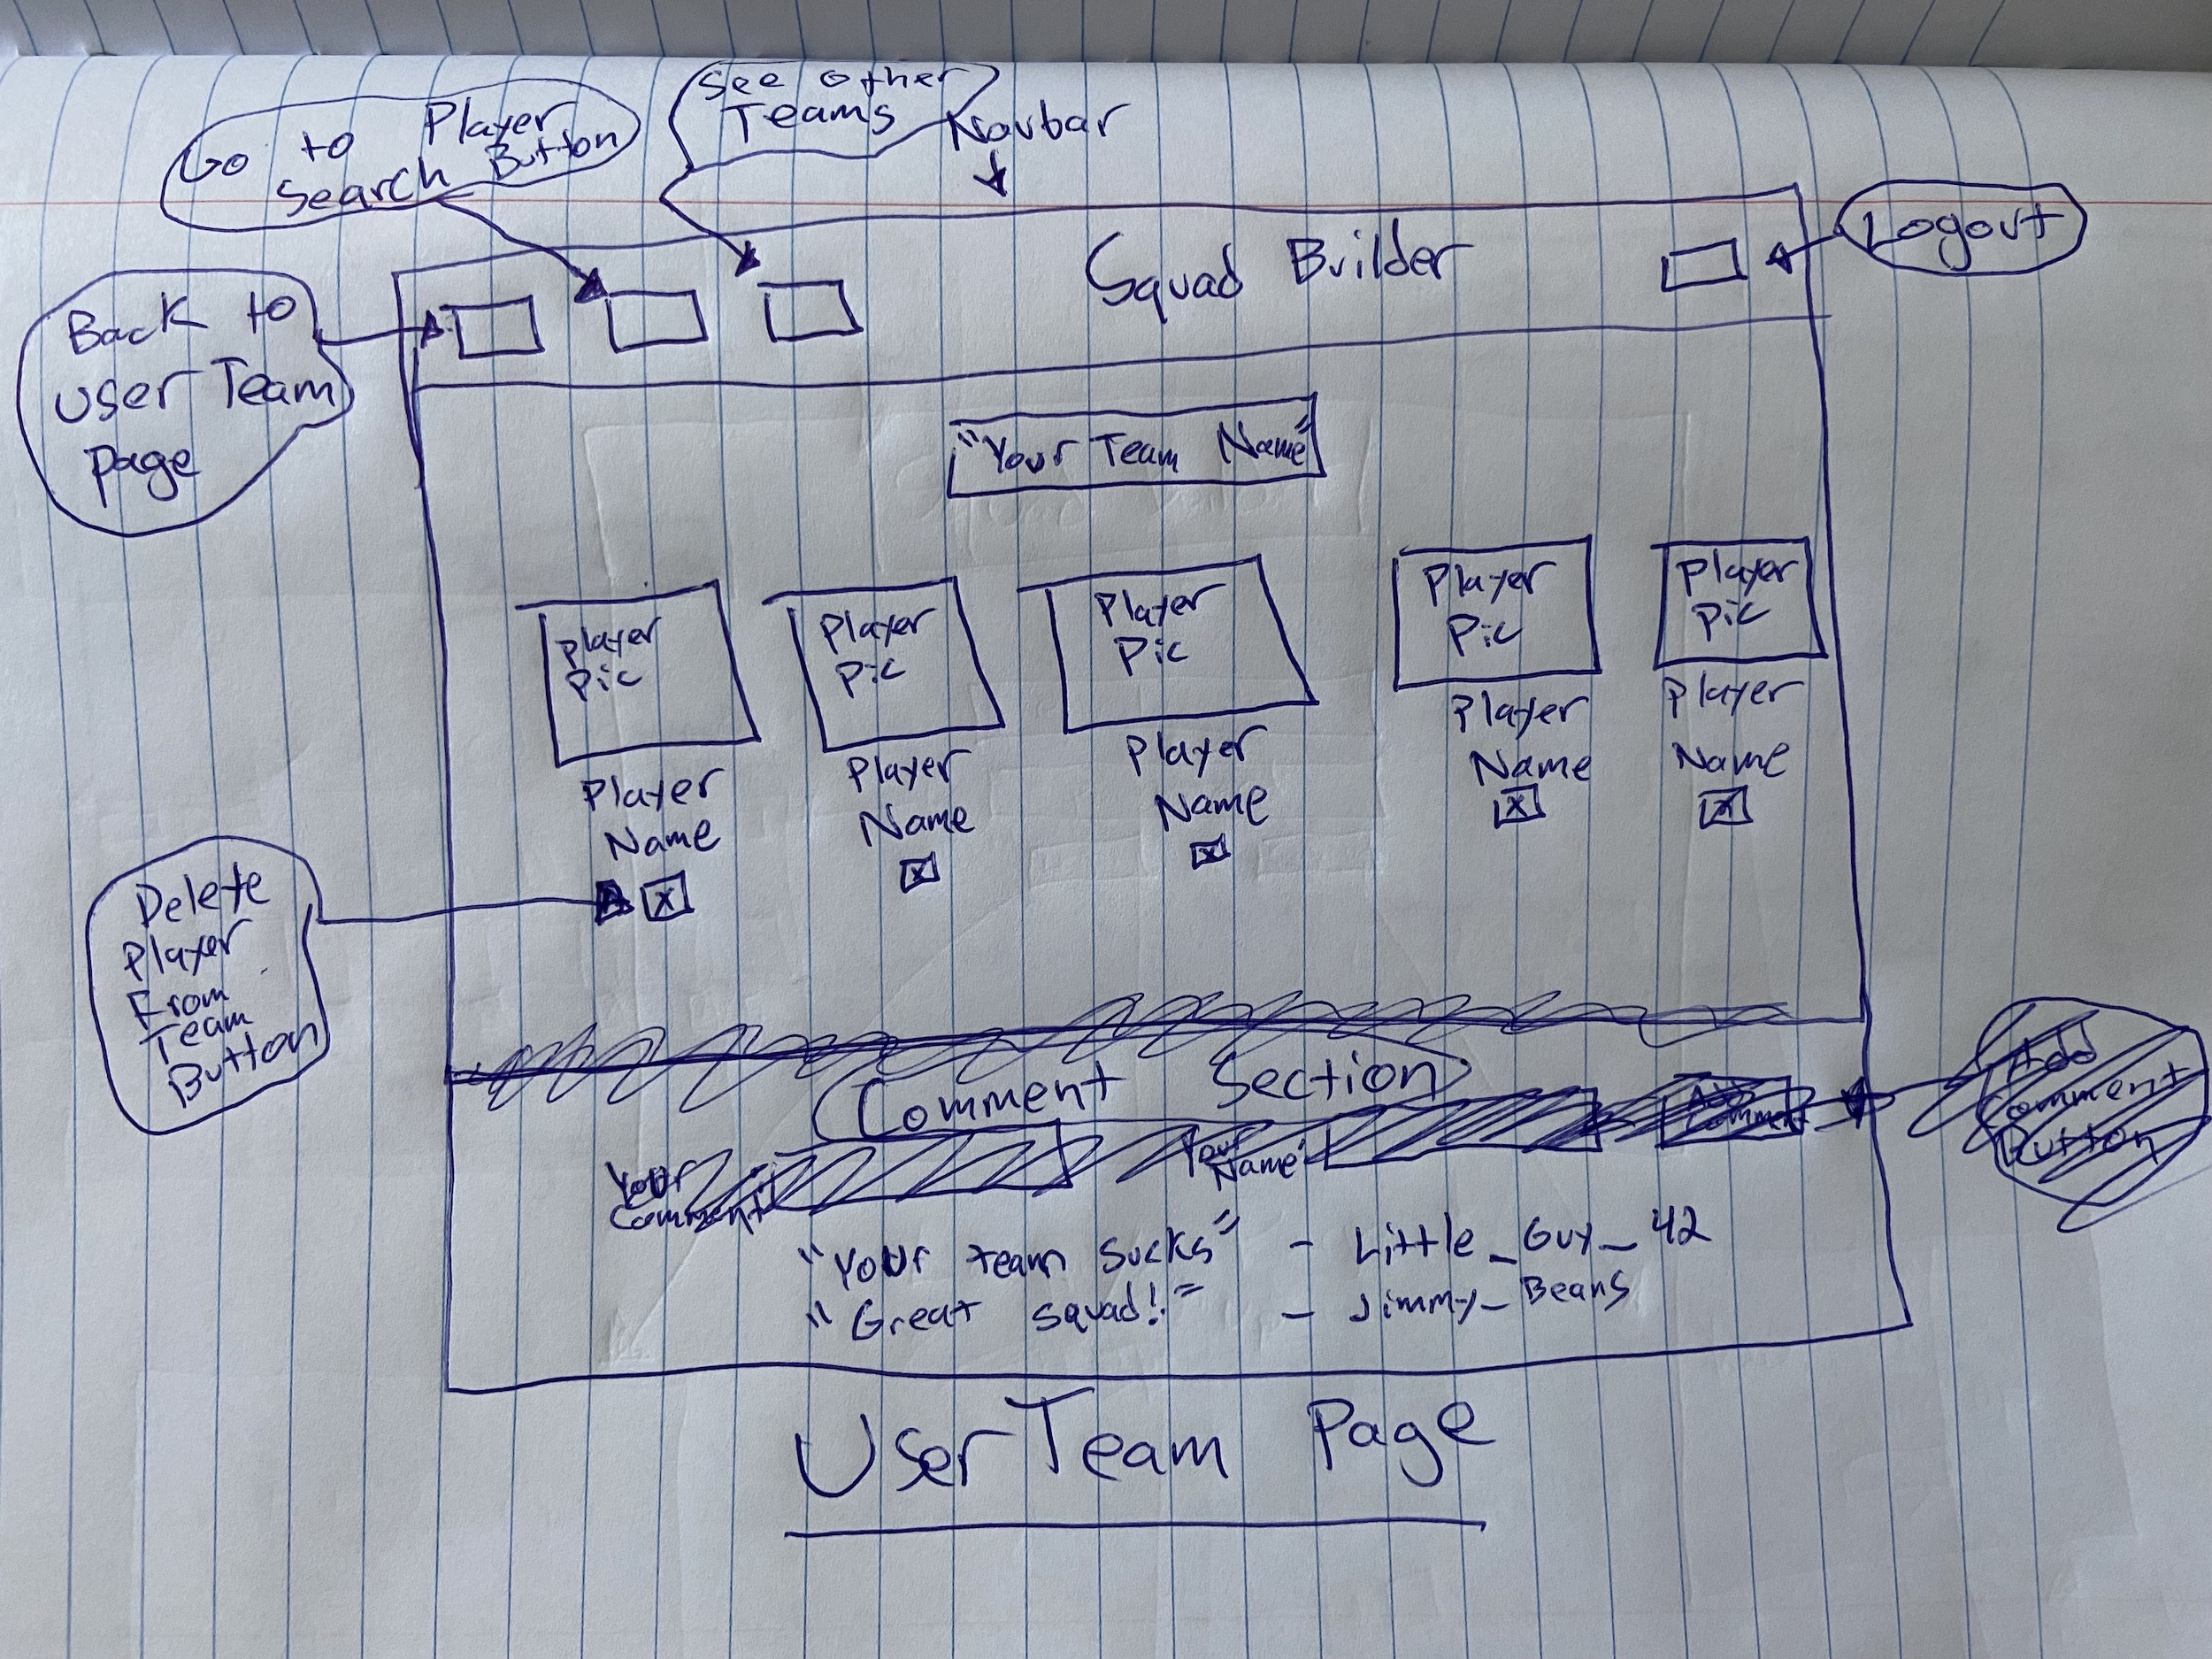 See other
Teams
Navbar
Go to Player
Search Button
Logout
Squad Builder
Back to
User Team
Page
"Your Team Name"
Player
Pic
Player
Name
X
Player
Pic
Player
Name
X
Player
Pic
Player
Name
X
Player
Pic
Player
Name
X
Player
Pic
Player
Name
X
Delete
Player
From
Team
Button
Comment Section
Add
Comment
Button
Add
Comment
Your
Comment:
Your
Name:
"Your team sucks" - Little_Guy_42
"Great squad!" - Jimmy_Beans
User Team Page